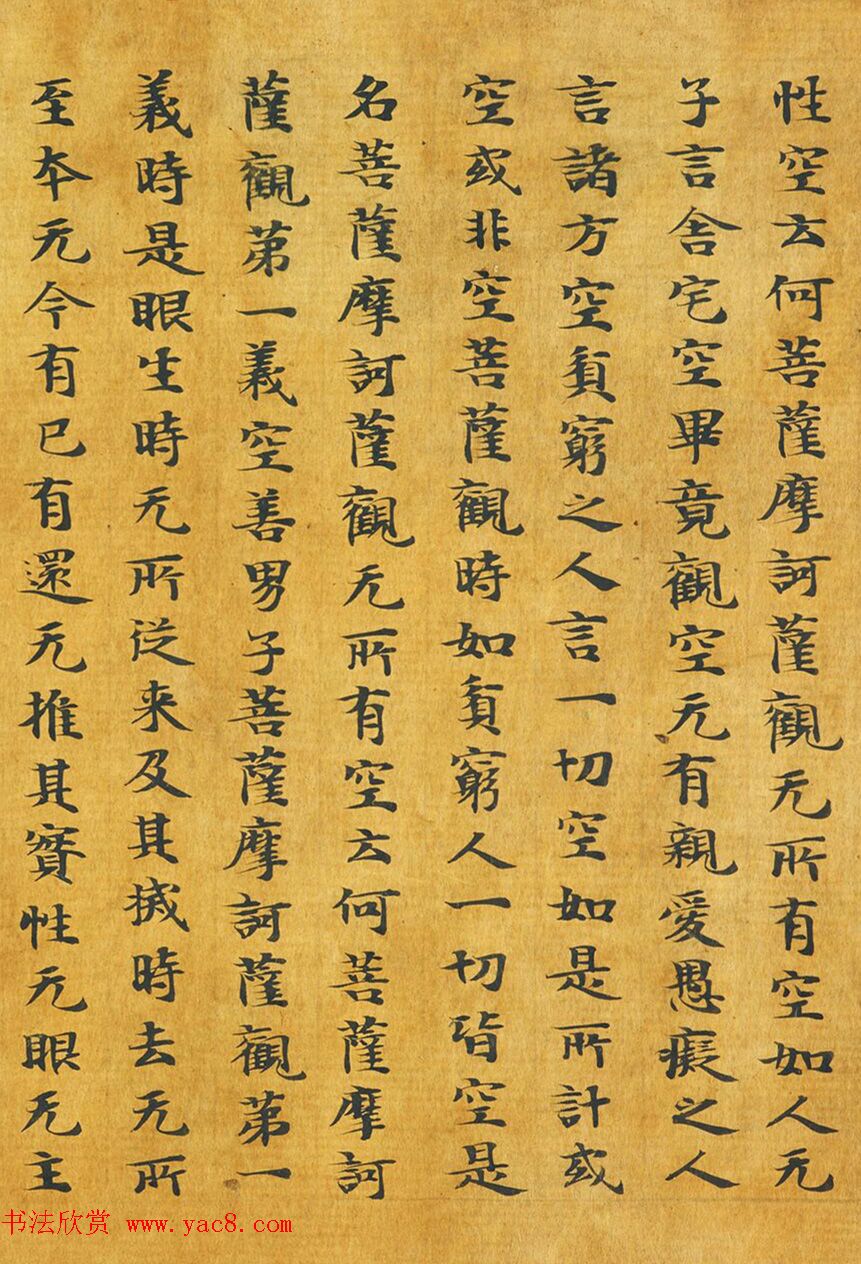 性空云何菩薩摩訶薩觀无所有空如人无
子言舍宅空畢竟觀空无有親愛愚癡之人
言諸方空貧窮之人言一切空如是所計或
空或非空菩薩觀時如貧窮人一切皆空是
名菩薩摩訶薩觀无所有空云何菩薩摩訶
薩觀第一義空善男子菩薩摩訶薩觀第一
義時是眼生時无所從来及其滅時去无所
至夲无今有已有還无推其實性无眼无主
书法欣赏 www.yac8.com